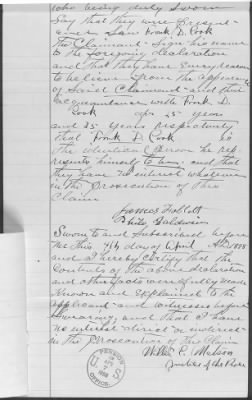 who being duly Sworn
Say that they were Present
and saw Frank D. Cook
the Claimant sign his name
to the foregoing declaration
and that they have every reason
to believe from the appearance
of Said Claimant and their
acquaintance with Frank D.
Cook of 25 years
and 25 years respectively
that Frank D Cook is
the identical Person he rep
resents himself to be and that
they have no interest whatever
in the Prosecution of this
Claim
James
Philo Baldwin
Sworn to and Subscribed before
me this 4th day of April A.D. 1888
and I hereby Certify that the
Contents of the above declaration
and other facts were fully made
Known and explained to the
applicant and witnesses before
Swearing, and that I have
no interest direct or indirect
in the Prosecution of this Claim
Willis C.
Justice of the Peace
U.S. PENSION OFFICE
APR 7 1888